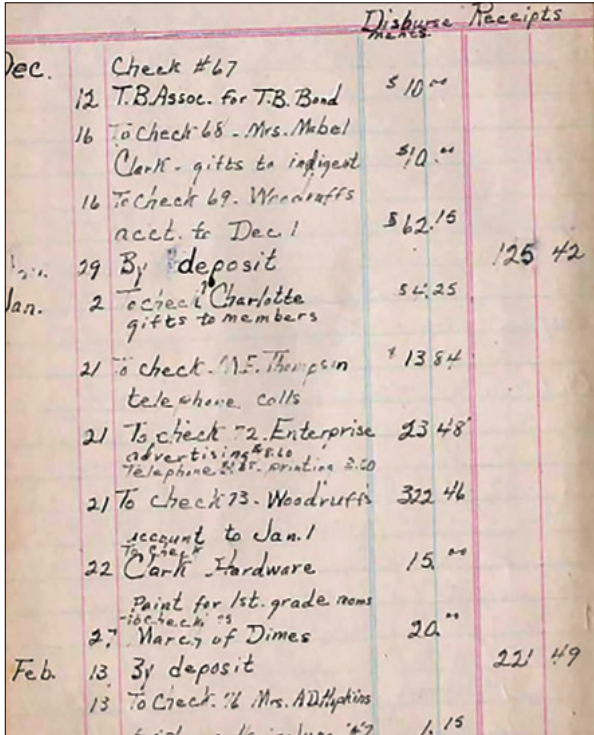 Disburse Receipts
ments.
Dec. Check #67
12 T.B. Assoc. for T.B. Bond $10.00
16 To Check 68 - Mrs. Mabel
Clark - gifts to indigent $10.00
16 To Check 69. Woodruffs
acct. to Dec 1 $62.15
29 By deposit 125 42
Jan. 2 To check Charlotte $4.25
gifts to members
21 To check M.E. Thompson $13 84
telephone calls
21 To check 72. Enterprise 23 48
advertising
Telephone printing
21 To check 73 - Woodruffs 322 46
account to Jan. 1
To check
22 Clark Hardware 15.00
Paint for 1st. grade rooms
To check
March of Dimes 20.00
Feb. 13 By deposit 221 49
13 To Check. 76 Mrs. A.D. Hopkins
1.15